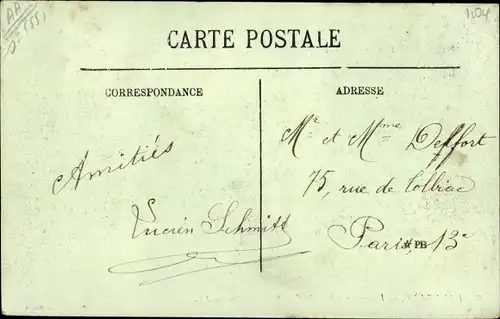 CARTE POSTALE
CORRESPONDANCE
ADRESSE
Amitiés
Lucien Schmitt
Mr et Mme Deffort
75, rue de Tolbiac
Paris, 13e
PB